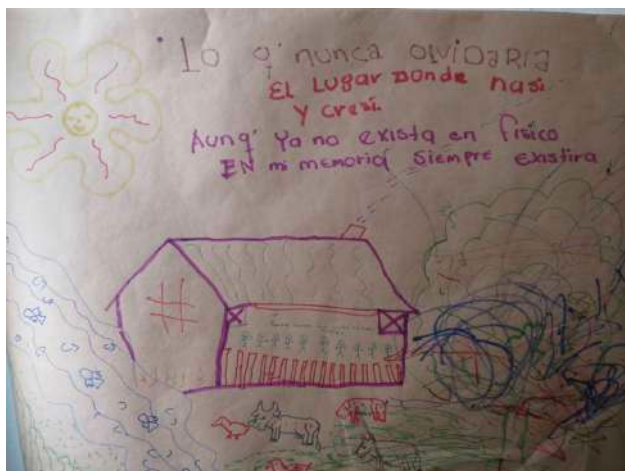 Lo q' nunca olvidaria
El Lugar Donde nasi
y cresi.
Aunq' Ya no exista en fisico
EN mi memoria siempre existira